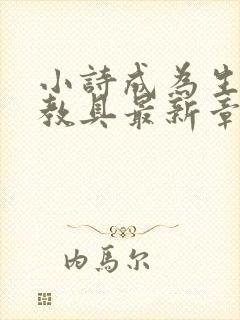 小詩成為生
教具最新章
内馬尔